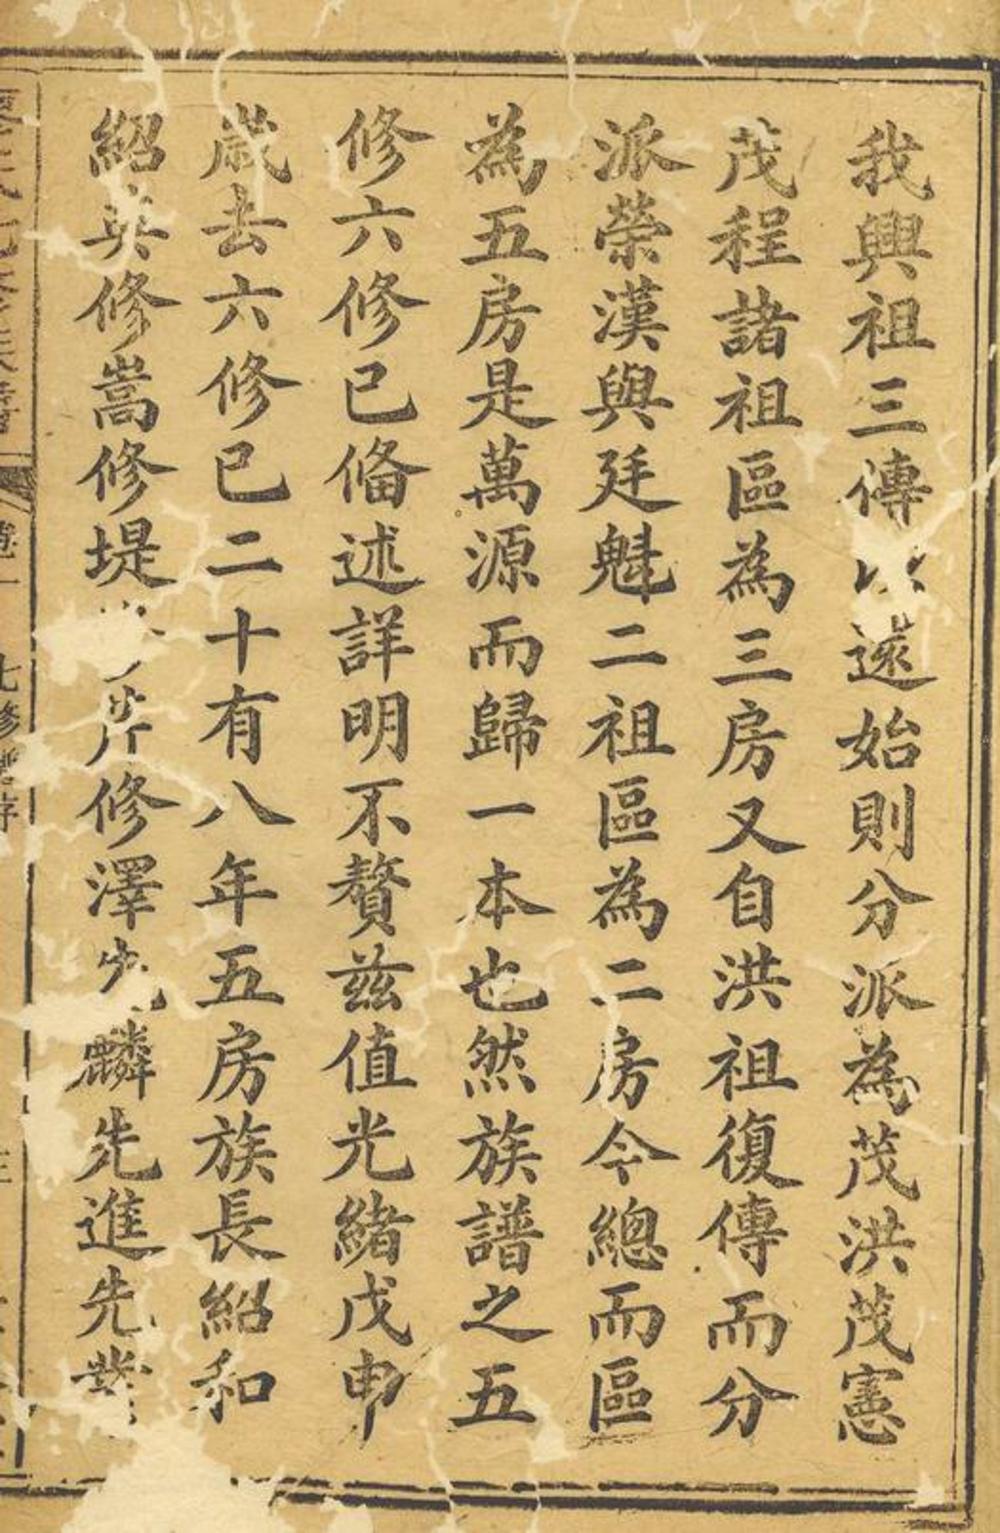 我興祖三傳遠始則分派為茂洪茂憲
茂程諸祖區為三房又自洪祖復傳而分
派榮漢與廷魁二祖區為二房今總而區
為五房是萬源而歸一本也然族譜之五
修六修已俻述詳明不贅兹值光緒戊申
歲去六修已二十有八年五房族長紹和
紹英修嵩修堤修澤先麟先進先
七修譜序